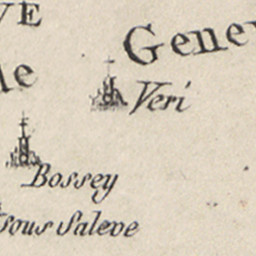 VE
Genev
le
Veri
Bossey
sous Saleve